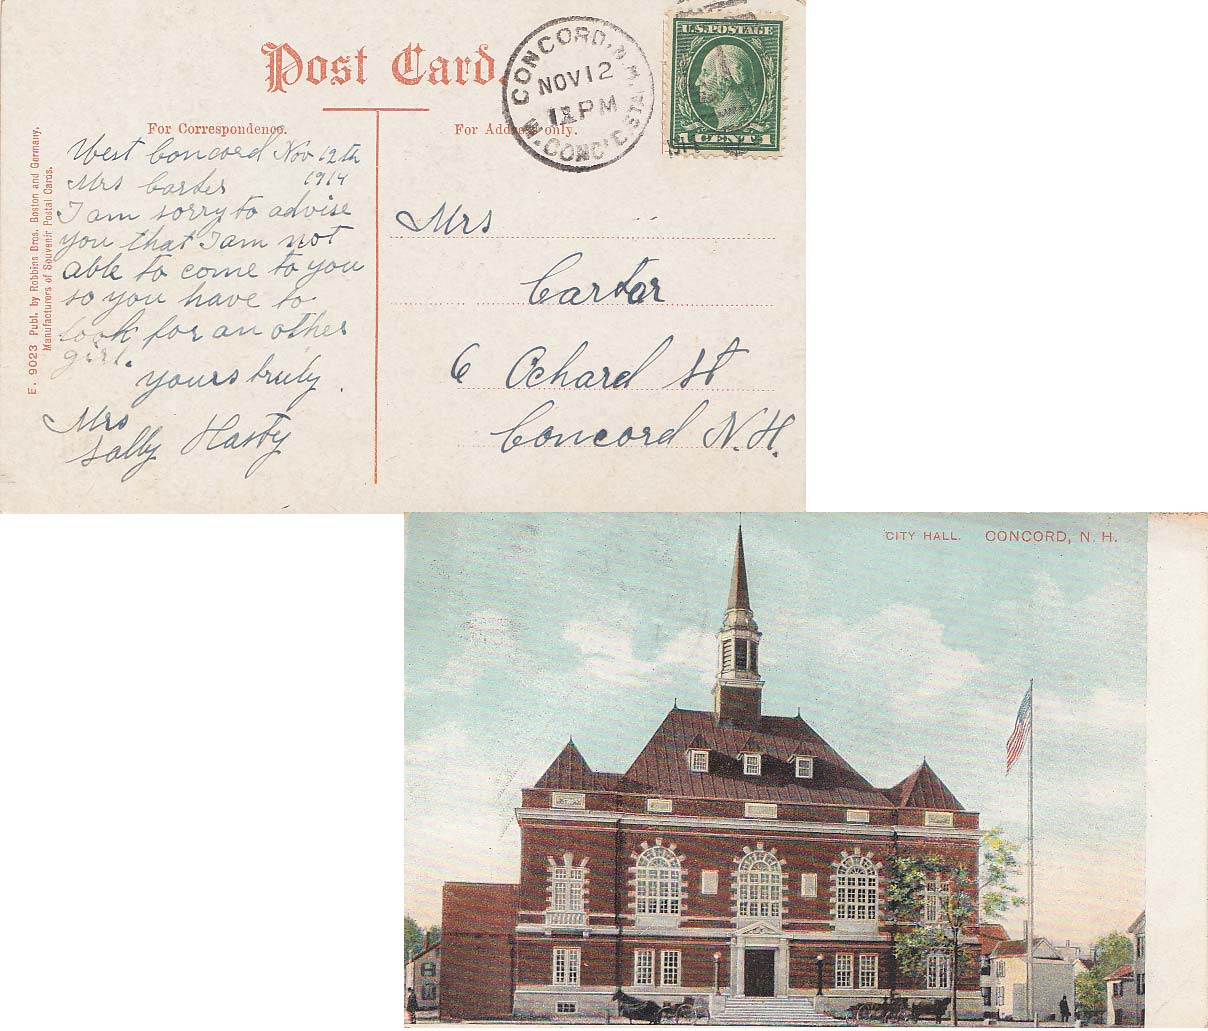 Post Card.
CONCORD, N.H.
NOV 12
PM
W. CONC'D. STA.
U.S. POSTAGE
1 CENT 1
For Correspondence.
For Address only.
E. 9023 Publ. by Robbins Bros. Boston and Germany.
Manufacturers of Souvenir Postal Cards.
West Concord Nov 12th
1914
Mrs Carter
I am sorry to advise
you that I am not
able to come to you
so you have to
look for an other
girl.
yours truly.
Mrs
Sally Hasty
Mrs
Carter
6 Ochard St
Concord N.H.
CITY HALL. CONCORD, N. H.